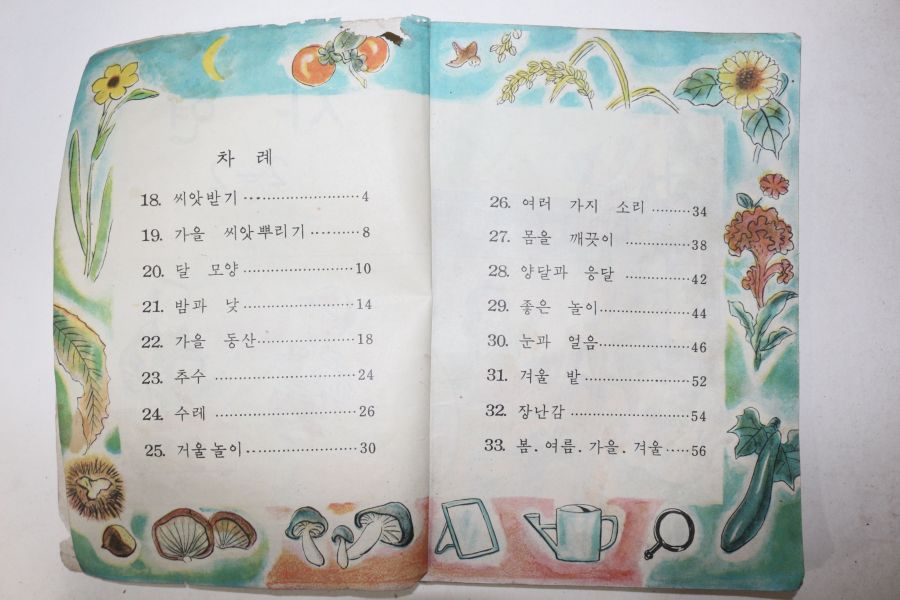 차 례
18. 씨앗받기 ························4
19. 가을 씨앗뿌리기 ··········8
20. 달 모양 ·······················10
21. 밤과 낮 ·······················14
22. 가을 동산 ····················18
23. 추수 ·····························24
24. 수레 ·····························26
25. 거울놀이 ·······················30
26. 여러 가지 소리 ·········34
27. 몸을 깨끗이 ·················38
28. 양달과 응달 ·················42
29. 좋은 놀이 ·····················44
30. 눈과 얼음 ·····················46
31. 겨울 밭 ························52
32. 장난감 ·························54
33. 봄. 여름. 가을. 겨울 ·····56